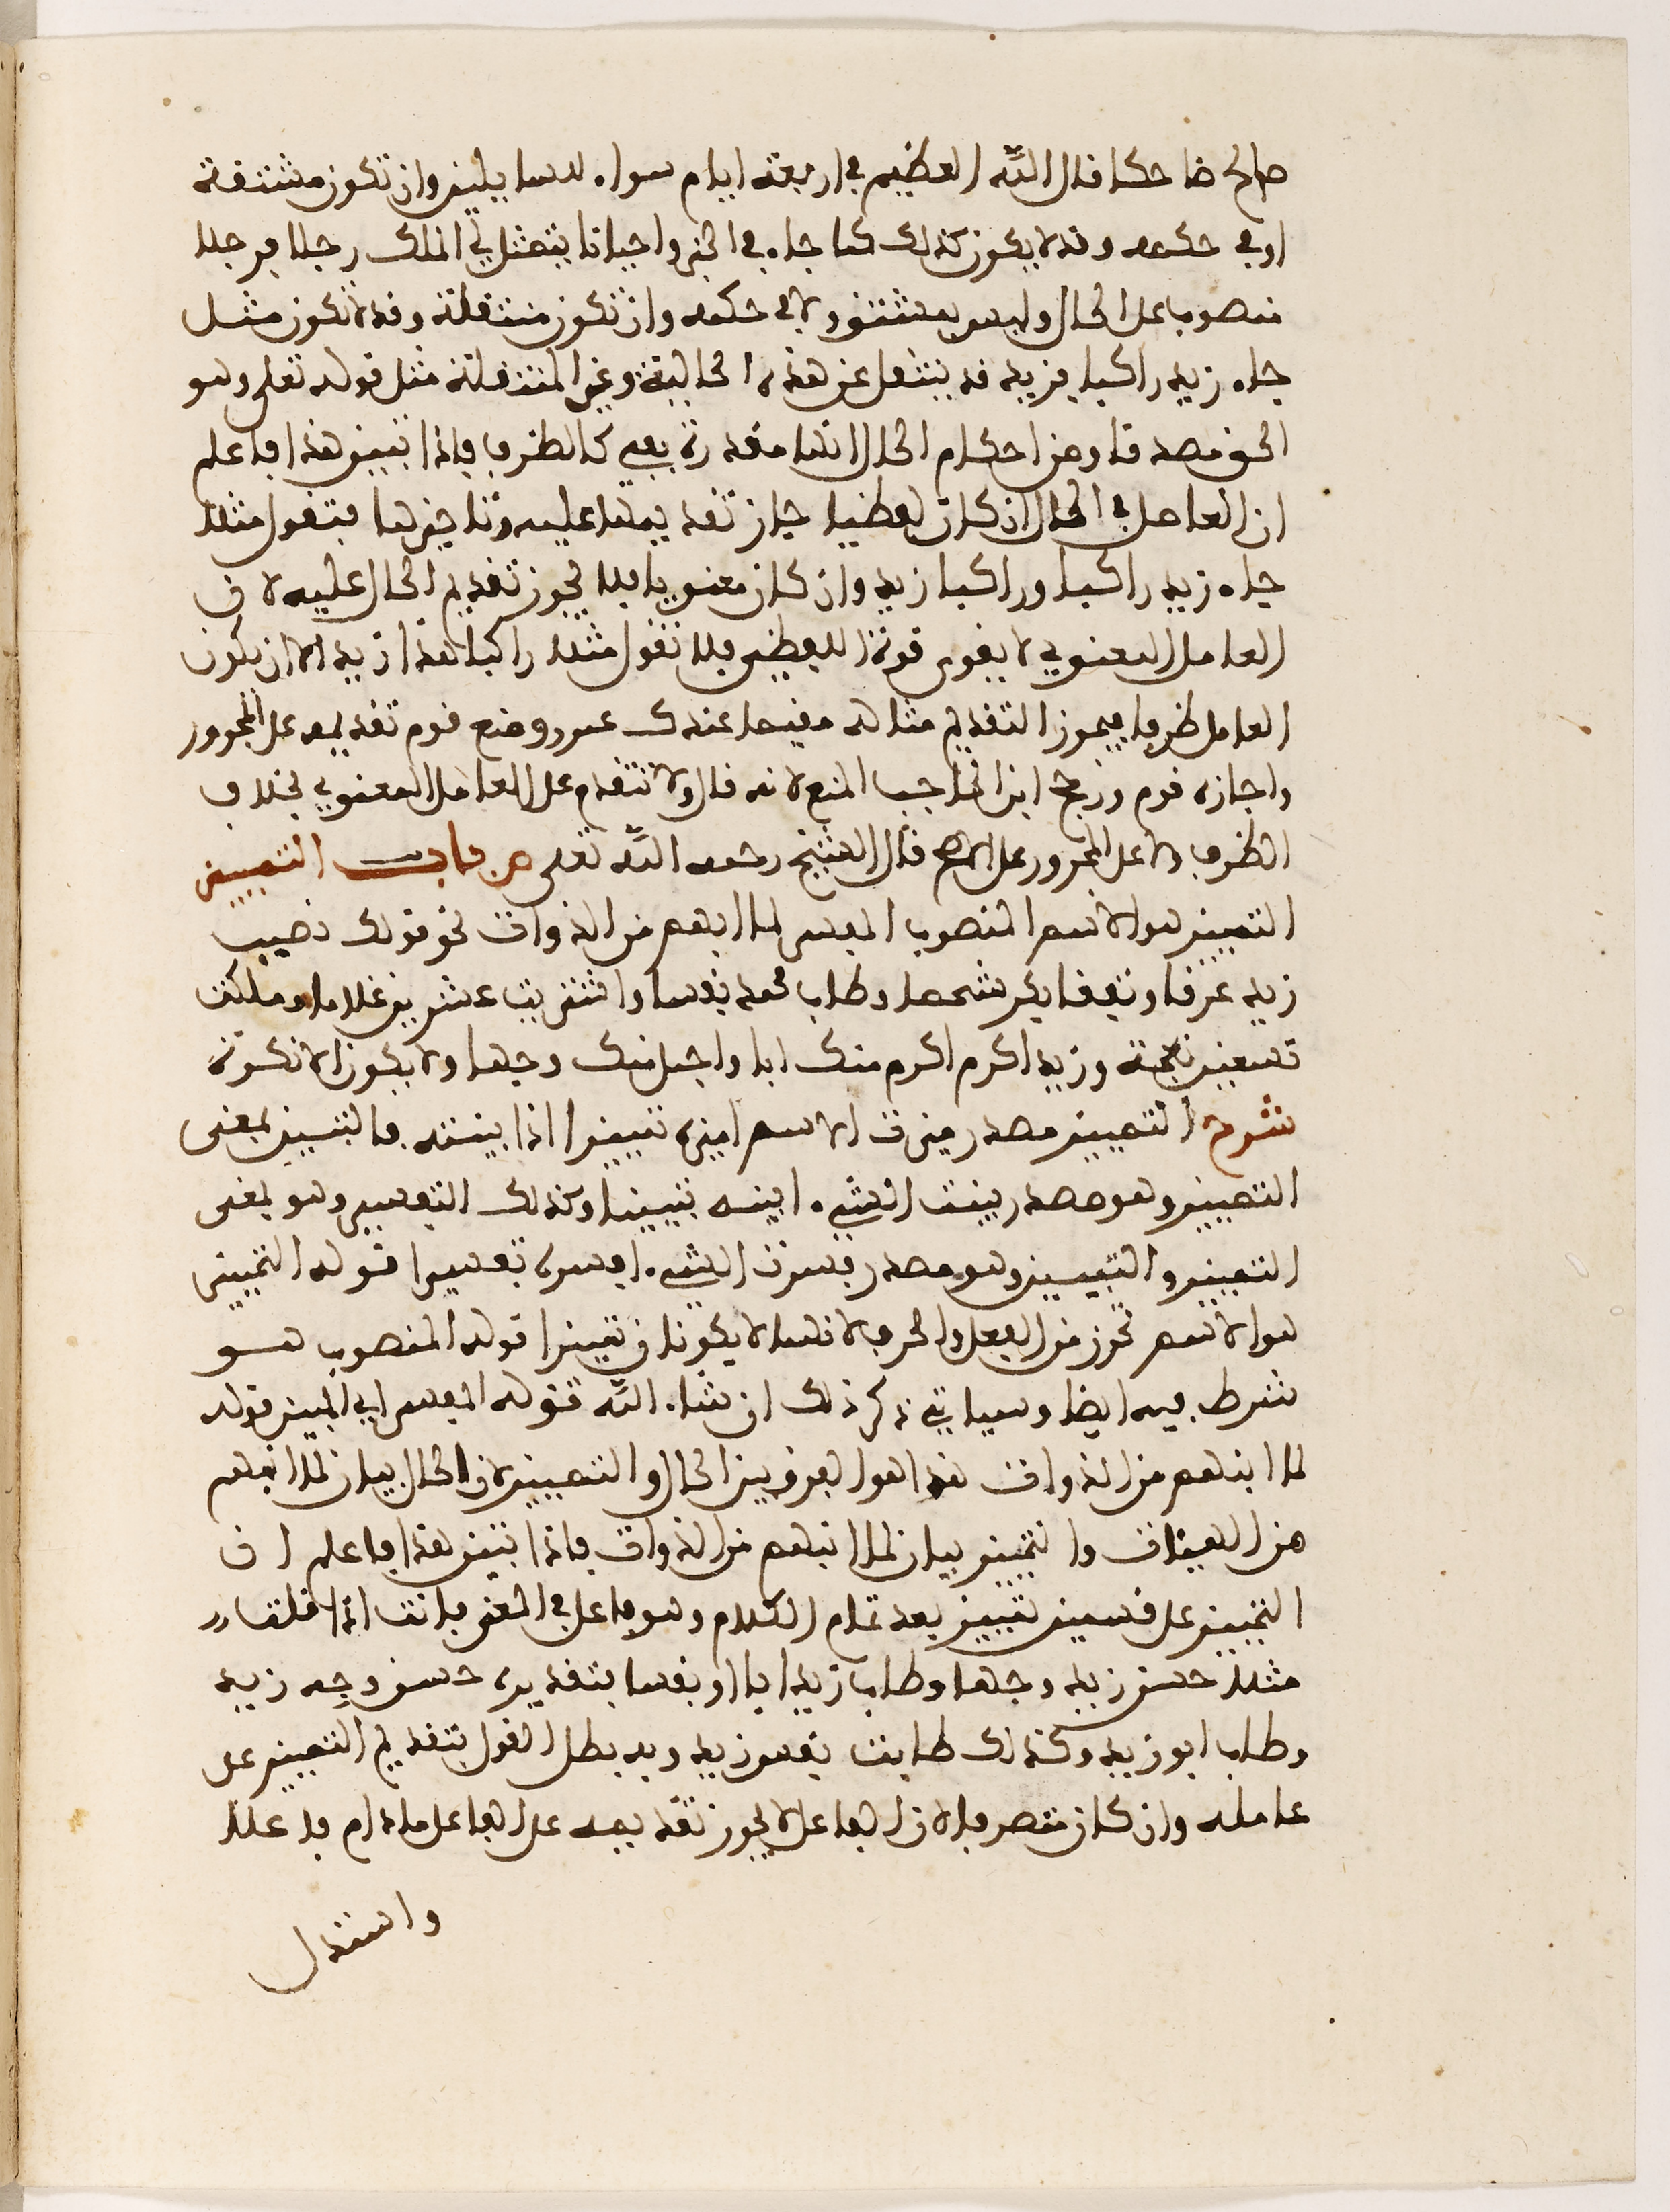 صالح ضاحكا قال الله العظيم في اربعة ايام سواء للسايلين وان تكون مشتقة
او في حكمه وقد لا يكون كذلك كما جاء في الخبر واحيانا يتمثل لي الملك رجلا فرجلا
منصوب على الحال وليس بمشتق ولا في حكمه وان تكون منتقلة وقد لا تكون مثل
جاء زيد راكبا فزيد قد ينتقل عن هذه الحالية وغير المنتقلة مثل قوله تعلى وهو
الحق مصدقا ومن احكام الحال انها مقدرة بفي كالظرف فاذا تبين هذا فاعلم
ان العامل في الحال ان كان لفظيا جاز تقديمها عليه وتاخيرها فتقول مثلا
جاء زيد راكبا وراكبا زيد وان كان معنويا فلا يجوز تقديم الحال عليه لان
العامل المعنوي لا يقوى قوة اللفظي فلا تقول مثلا راكبا هذا زيد الا ان يكون
العامل ظرفا فيجوز التقديم مثاله مقيما عندك عمرو ومنع قوم تقديمه على المجرور
واجازه قوم ورجح ابن الحاجب المنع لانه قال ولا تتقدم على العامل المعنوي بخلاف
الظرف ولا على المجرور على الاصح قال الشيخ رحمه الله تعلى ص باب التمييز
التمييز هو الاسم المنصوب المفسر لما انبهم من الذوات نحو قولك تصبب
زيد عرقا وتفقا بكر شحما وطاب محمد نفسا واشتريت عشرين غلاما وملكت
تسعين نعجة وزيد اكرم اكرم منك ابا واجمل منك وجها ولا يكون الا نكرة
شرح التمييز مصدر ميزت الاسم اميزه تمييزا اذا بينته فالتبيين بمعنى
التمييز وهو مصدر بينت الشيء ابينه تبيينا وكذلك التفسير وهو بمعنى
التمييز والتبيين وهو مصدر فسرت الشيء افسره تفسيرا قوله التمييز
هو الاسم تحرز من الفعل والحرف لانهما لا يكونان تمييزا قوله المنصوب هو
شرط فيه ايضا وسياتي ذكر ذلك ان شاء الله قوله المفسر اي المبين قوله
لما انبهم من الذوات هذا هو الفرق بين الحال والتمييز لان الحال بيان لما انبهم
من الهيئات والتمييز بيان لما انبهم من الذوات فاذا تبين هذا فاعلم ان
التمييز على قسمين تمييز بعد تمام الكلام وهو فاعل في المعنى فانت اذا قلت
مثلا حسن زيد وجها وطاب زيد ابا او نفسا بتقديره حسن وجه زيد
وطاب ابو زيد وكذلك طابت نفس زيد وبه بطل القول بتقديم التمييز على
عامله وان كان متصرفا لان الفاعل لا يجوز تقديمه على الفاعل مادام فاعلا
واستدل